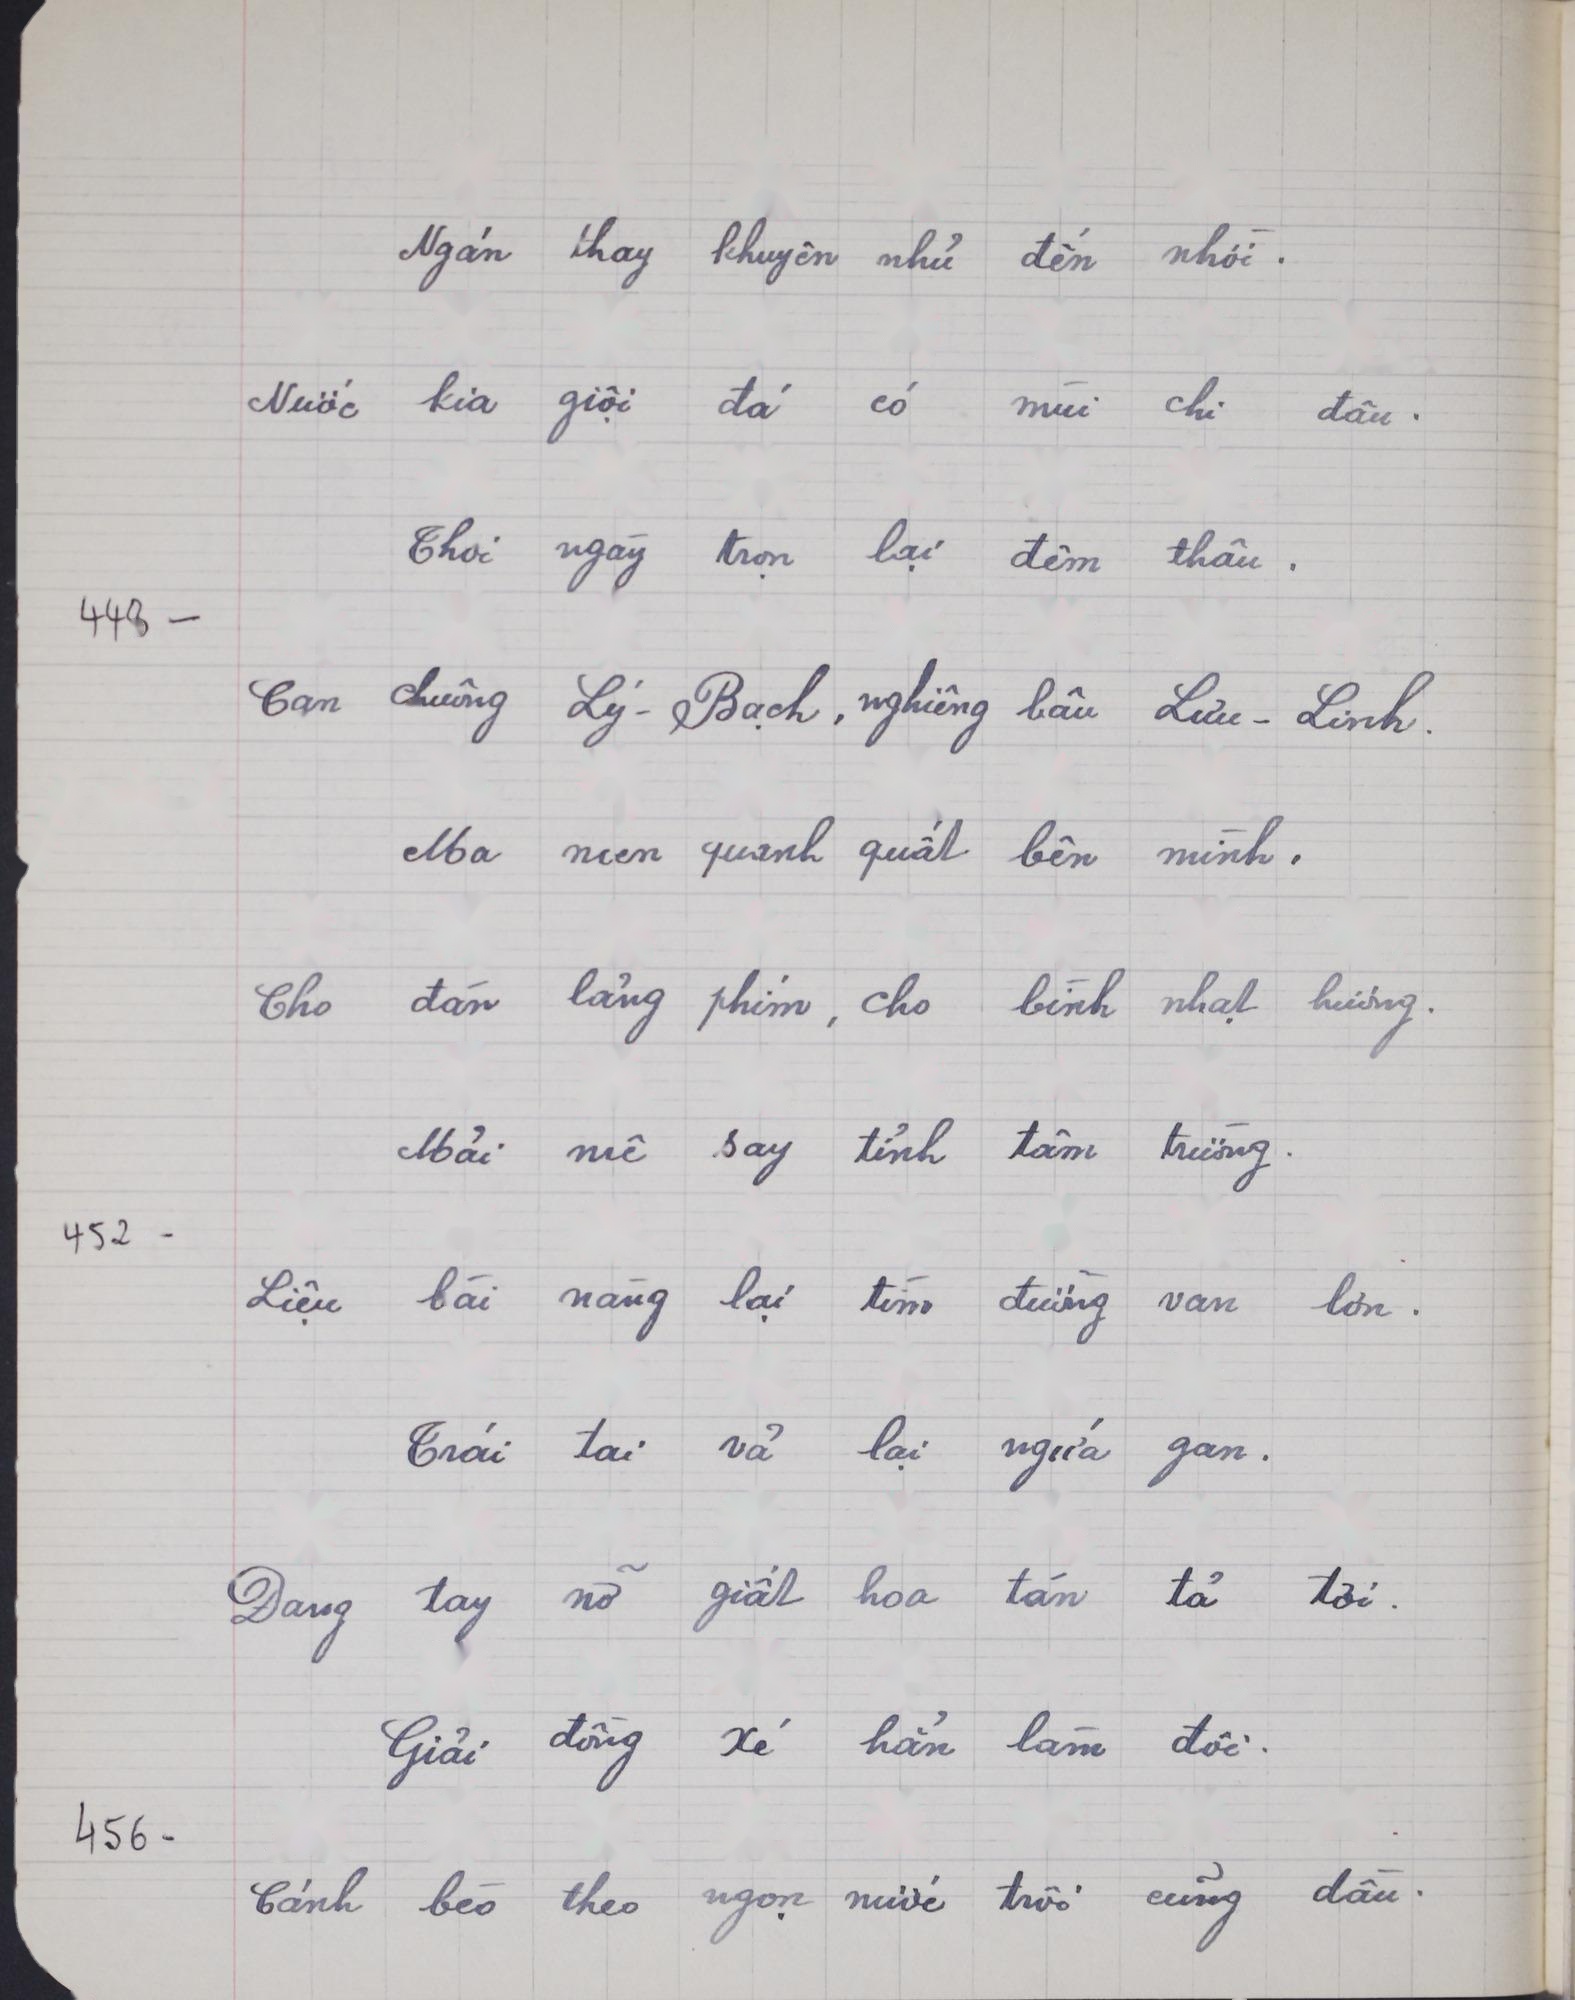 Ngán thay khuyên nhủ đến nhời.
Nước kia giội đá có mùi chi đâu.
Thoi ngày trọn lại đêm thâu.
448 —
Can chuông Lý-Bạch, nghiêng bầu Lưu-Linh.
Ma men quanh quất bên mình.
Cho đàn lảng phím, cho bình nhạt hương.
Mải mê say tỉnh tầm trường.
452 -
Liệu bài nàng lại tìm đường van lơn.
Trái tai vả lại ngứa gan.
Dang tay nỡ giắt hoa tàn tả tơi.
Giải đồng xé hẳn làm đôi.
456-
Cánh bèo theo ngọn nước trôi cũng dầu.